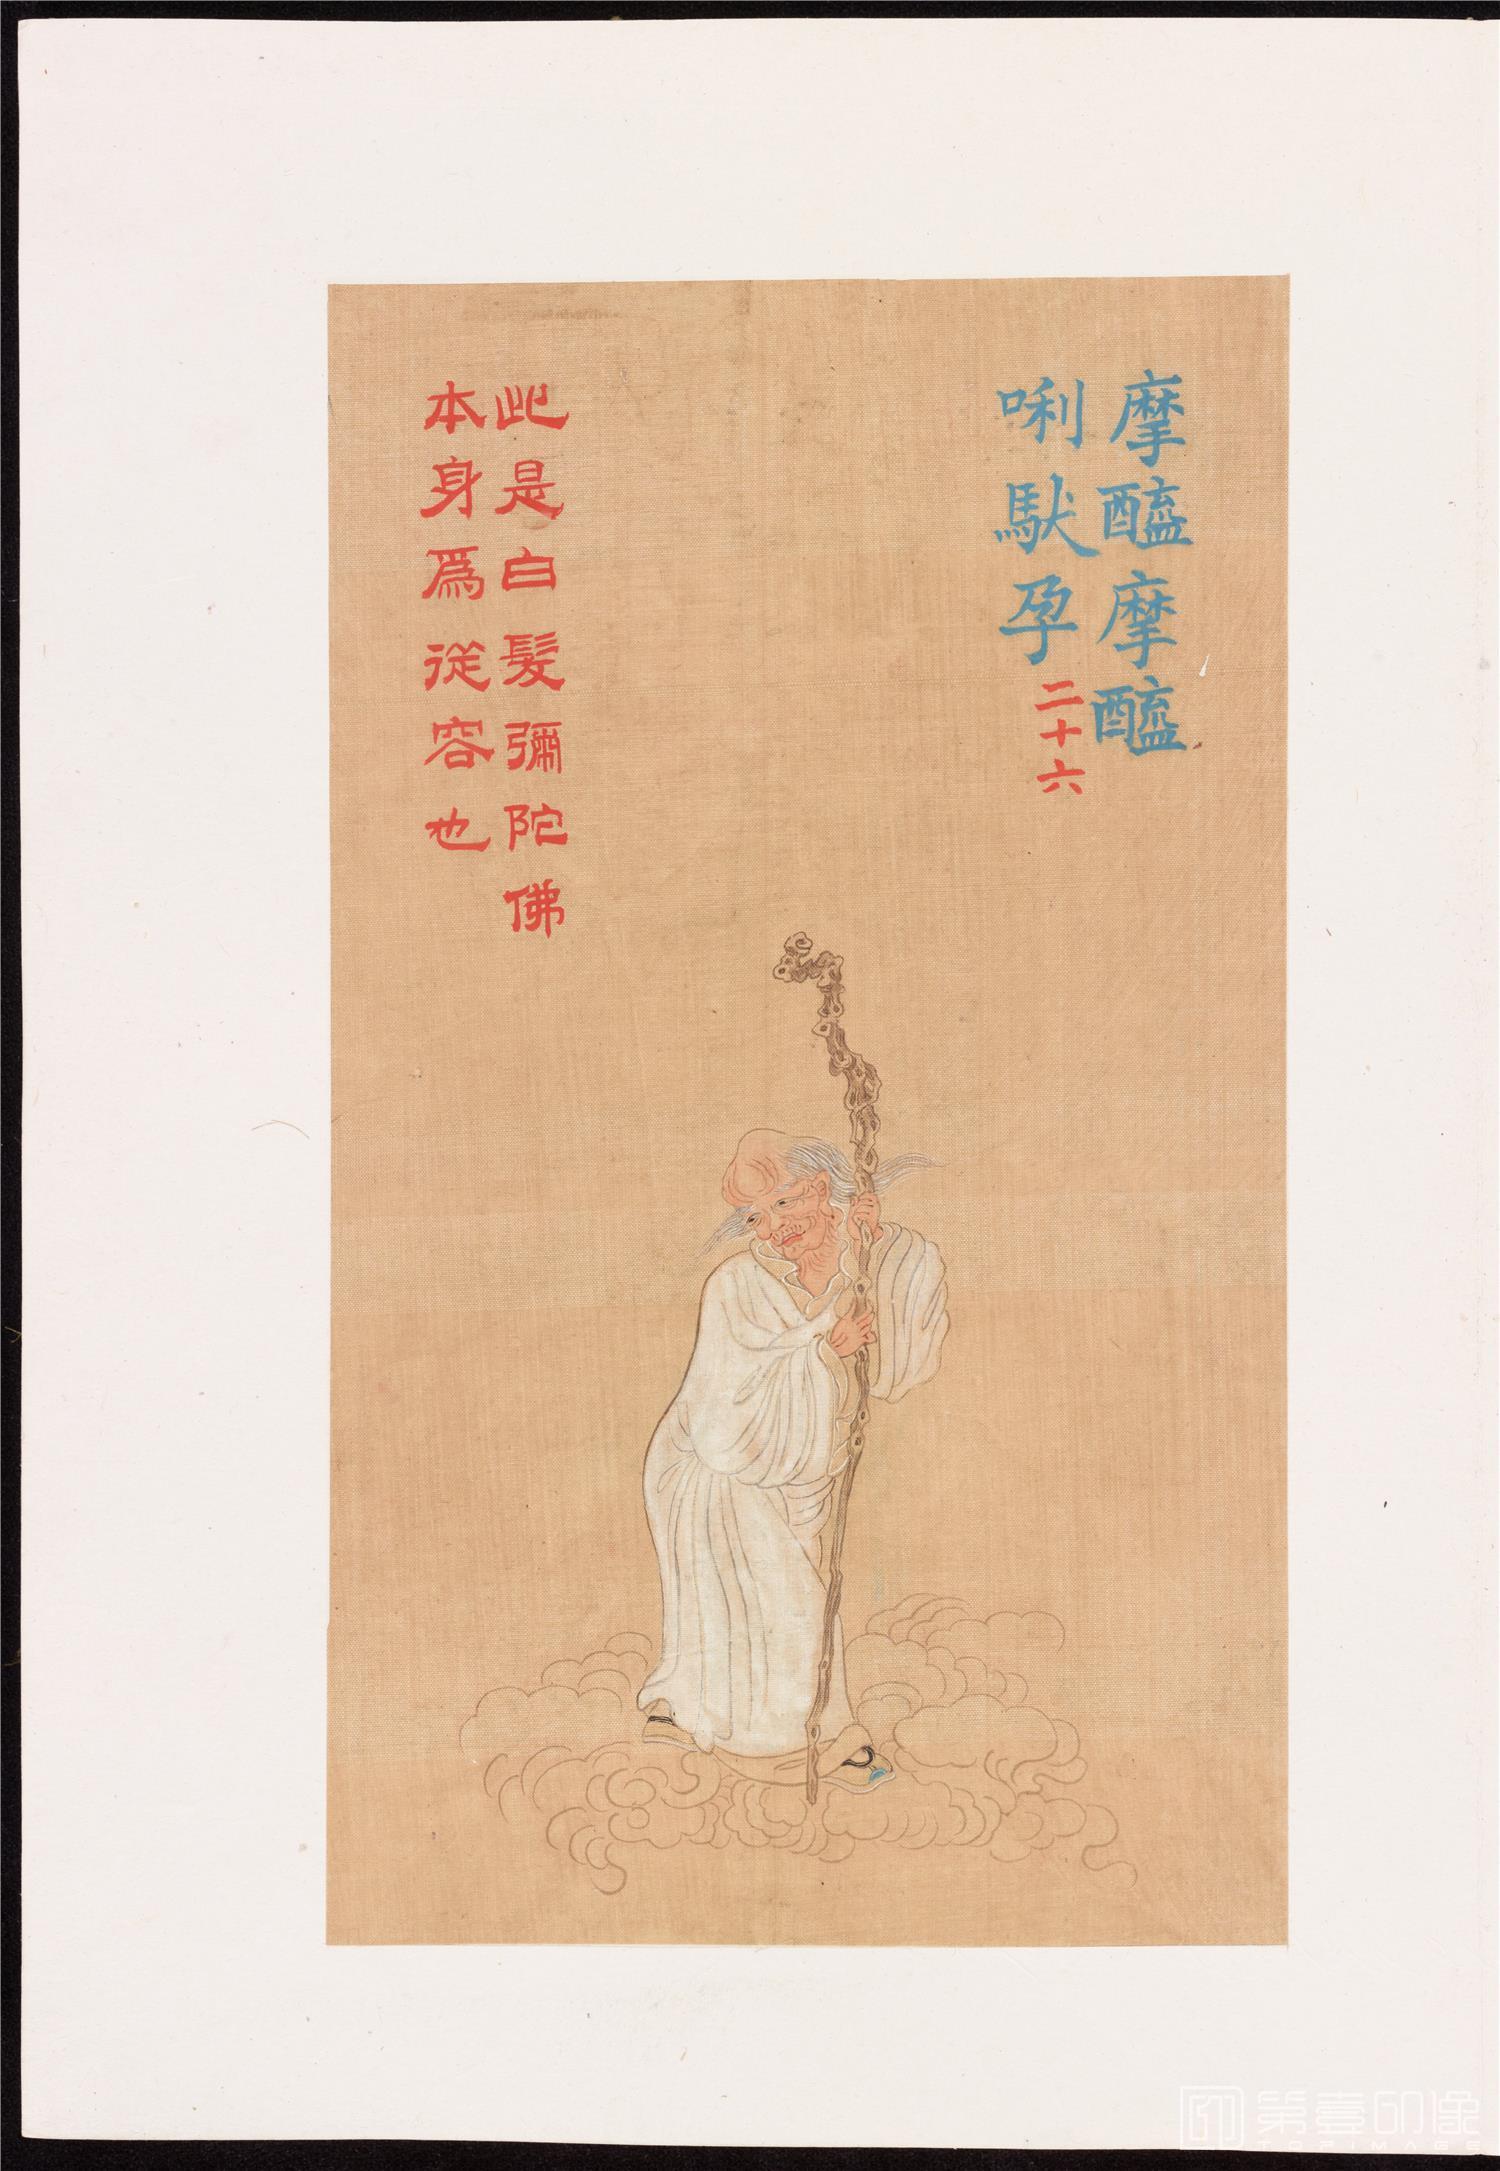 摩醯摩醯
唎馱孕二十六
此是白髮彌陀佛
本身爲從容也
第壹印像
TOPIMAGE